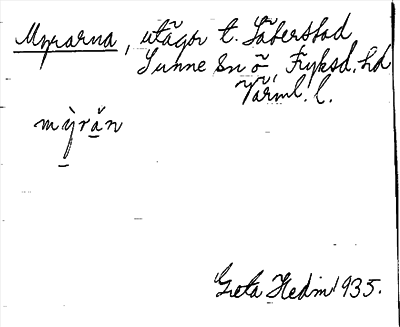 Myrarna, utägor t. Säterstad
Sunne sn ö, Fryksd. hd
Värml. l.
mỳrăn
Greta Hedin 1935.